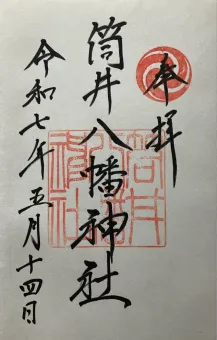 奉拝
筒井八幡神社
令和七年五月十四日